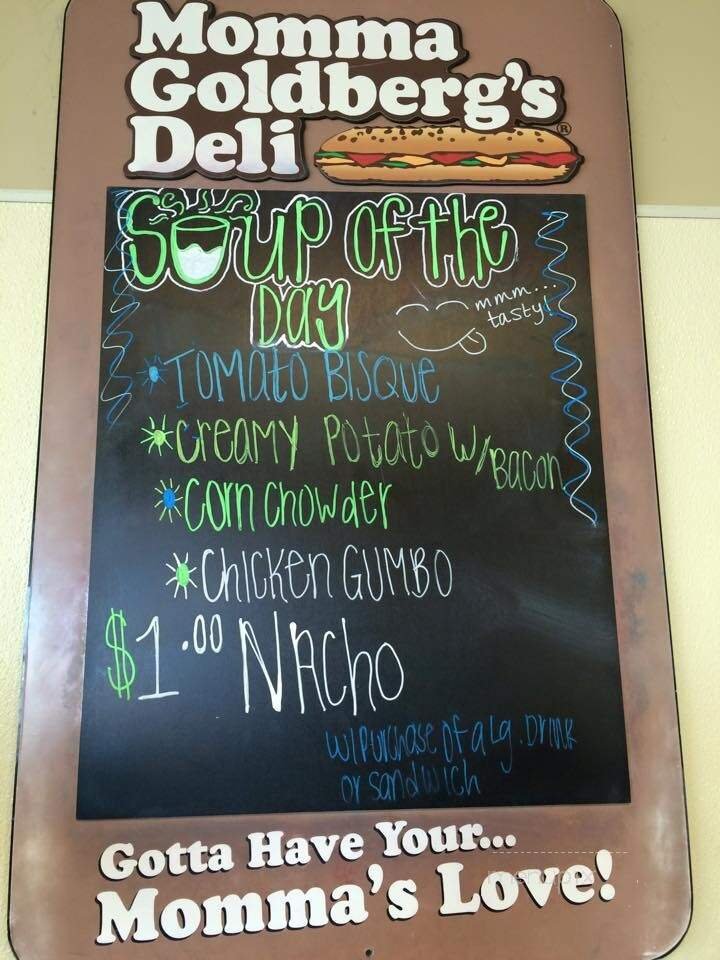 Momma
Goldberg's
Deli
®
Soup of the
Day
mmm...
tasty!
Tomato Bisque
Creamy Potato w/Bacon
Corn Chowder
Chicken Gumbo
$1.00 Nacho
w/Purchase of a Lg. Drink
or sandwich
Gotta Have Your...
Momma's Love!